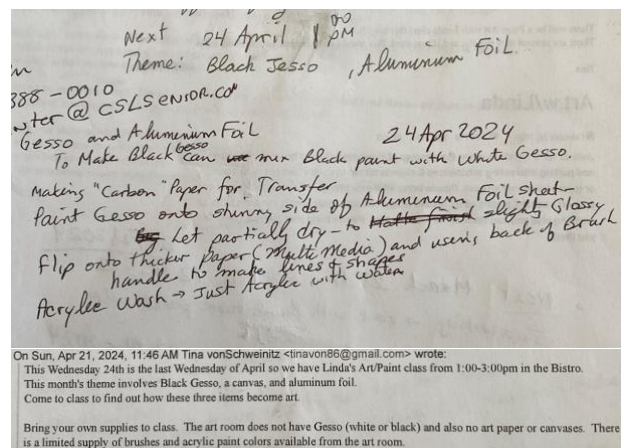 Next 24 April 1 00 PM
Theme: Black Jesso, Aluminium Foil.
388-0010
nter@CSLSENIOR.COM
Gesso and Alumenium Foil 24 Apr 2024
To Make Black Gesso can mix Black paint with White Gesso.
Making "Carbon" Paper for Transfer
Paint Gesso onto shinny side of Alumeneum Foil sheet
Let partially dry - to slight Glossy
flip onto thicker paper (Multe Media) and useing back of Brush
handle to make lines & shapes
Acrylec Wash → Just Acrylec with Water
On Sun, Apr 21, 2024, 11:46 AM Tina vonSchweinitz <tinavon86@gmail.com> wrote:
This Wednesday 24th is the last Wednesday of April so we have Linda's Art/Paint class from 1:00-3:00pm in the Bistro.
This month's theme involves Black Gesso, a canvas, and aluminum foil.
Come to class to find out how these three items become art.
Bring your own supplies to class. The art room does not have Gesso (white or black) and also no art paper or canvases. There
is a limited supply of brushes and acrylic paint colors available from the art room.